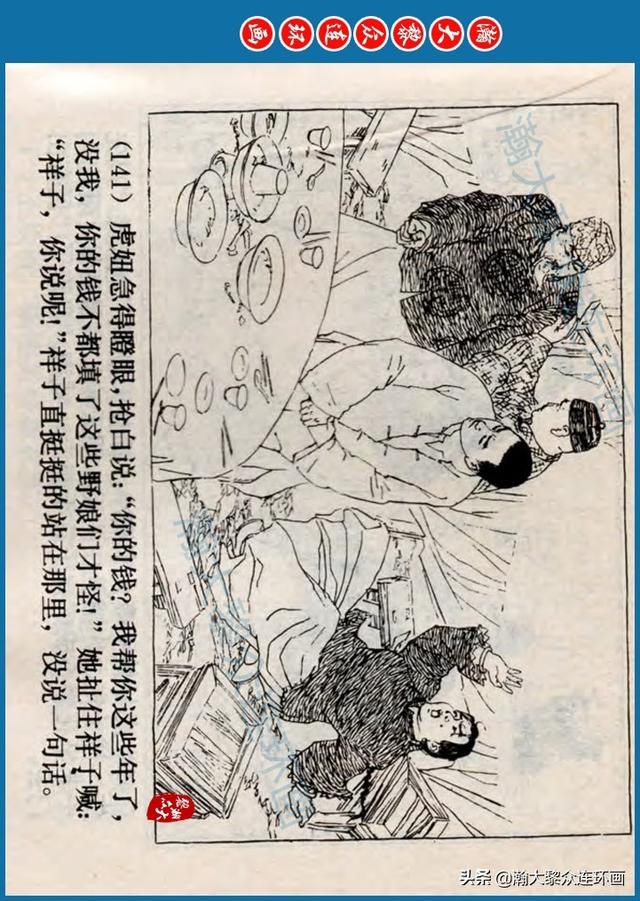 瀚大黎众连环画
(141) 虎妞急得瞪眼，抢白说：“你的钱？我帮你这些年了，
没我，你的钱不都填了这些野娘们才怪！”她扯住祥子喊：
“祥子，你说呢！”祥子直挺挺的站在那里，没说一句话。
瀚大黎众连环画
瀚大黎众连环画
头条 @瀚大黎众连环画